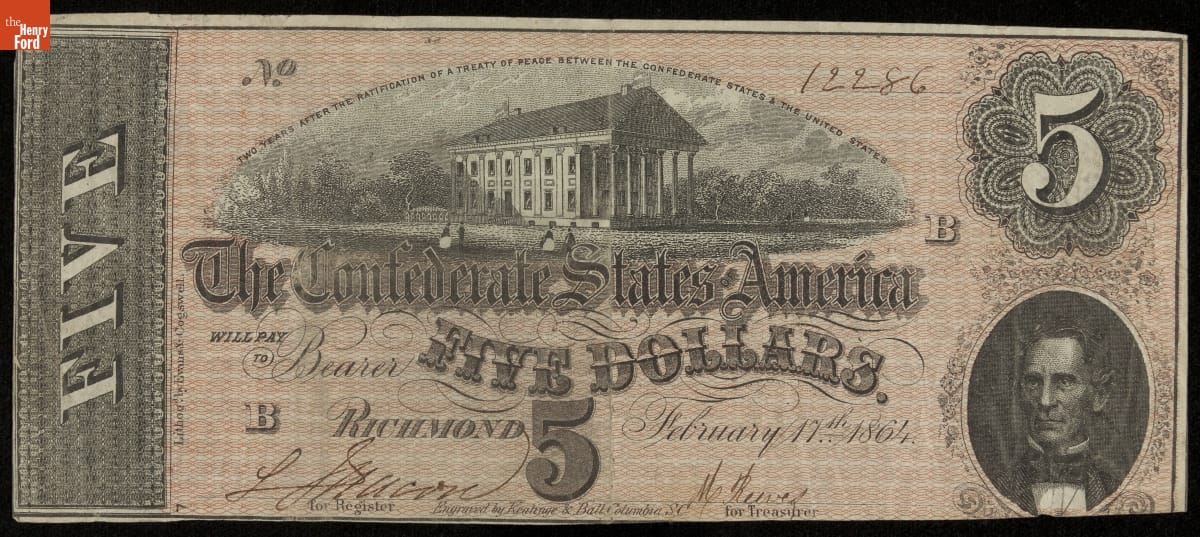 the
Henry
Ford
FIVE
No 12286
TWO YEARS AFTER THE RATIFICATION OF A TREATY OF PEACE BETWEEN THE CONFEDERATE STATES & THE UNITED STATES
5
B
The Confederate States of America
WILL PAY
TO
Bearer FIVE DOLLARS.
B RICHMOND 5 February 17th 1864.
for Register
Engraved by Keatinge & Ball, Columbia, S.C.
M Reeves
for Treasurer
Lithog'd by Evans & Cogswell